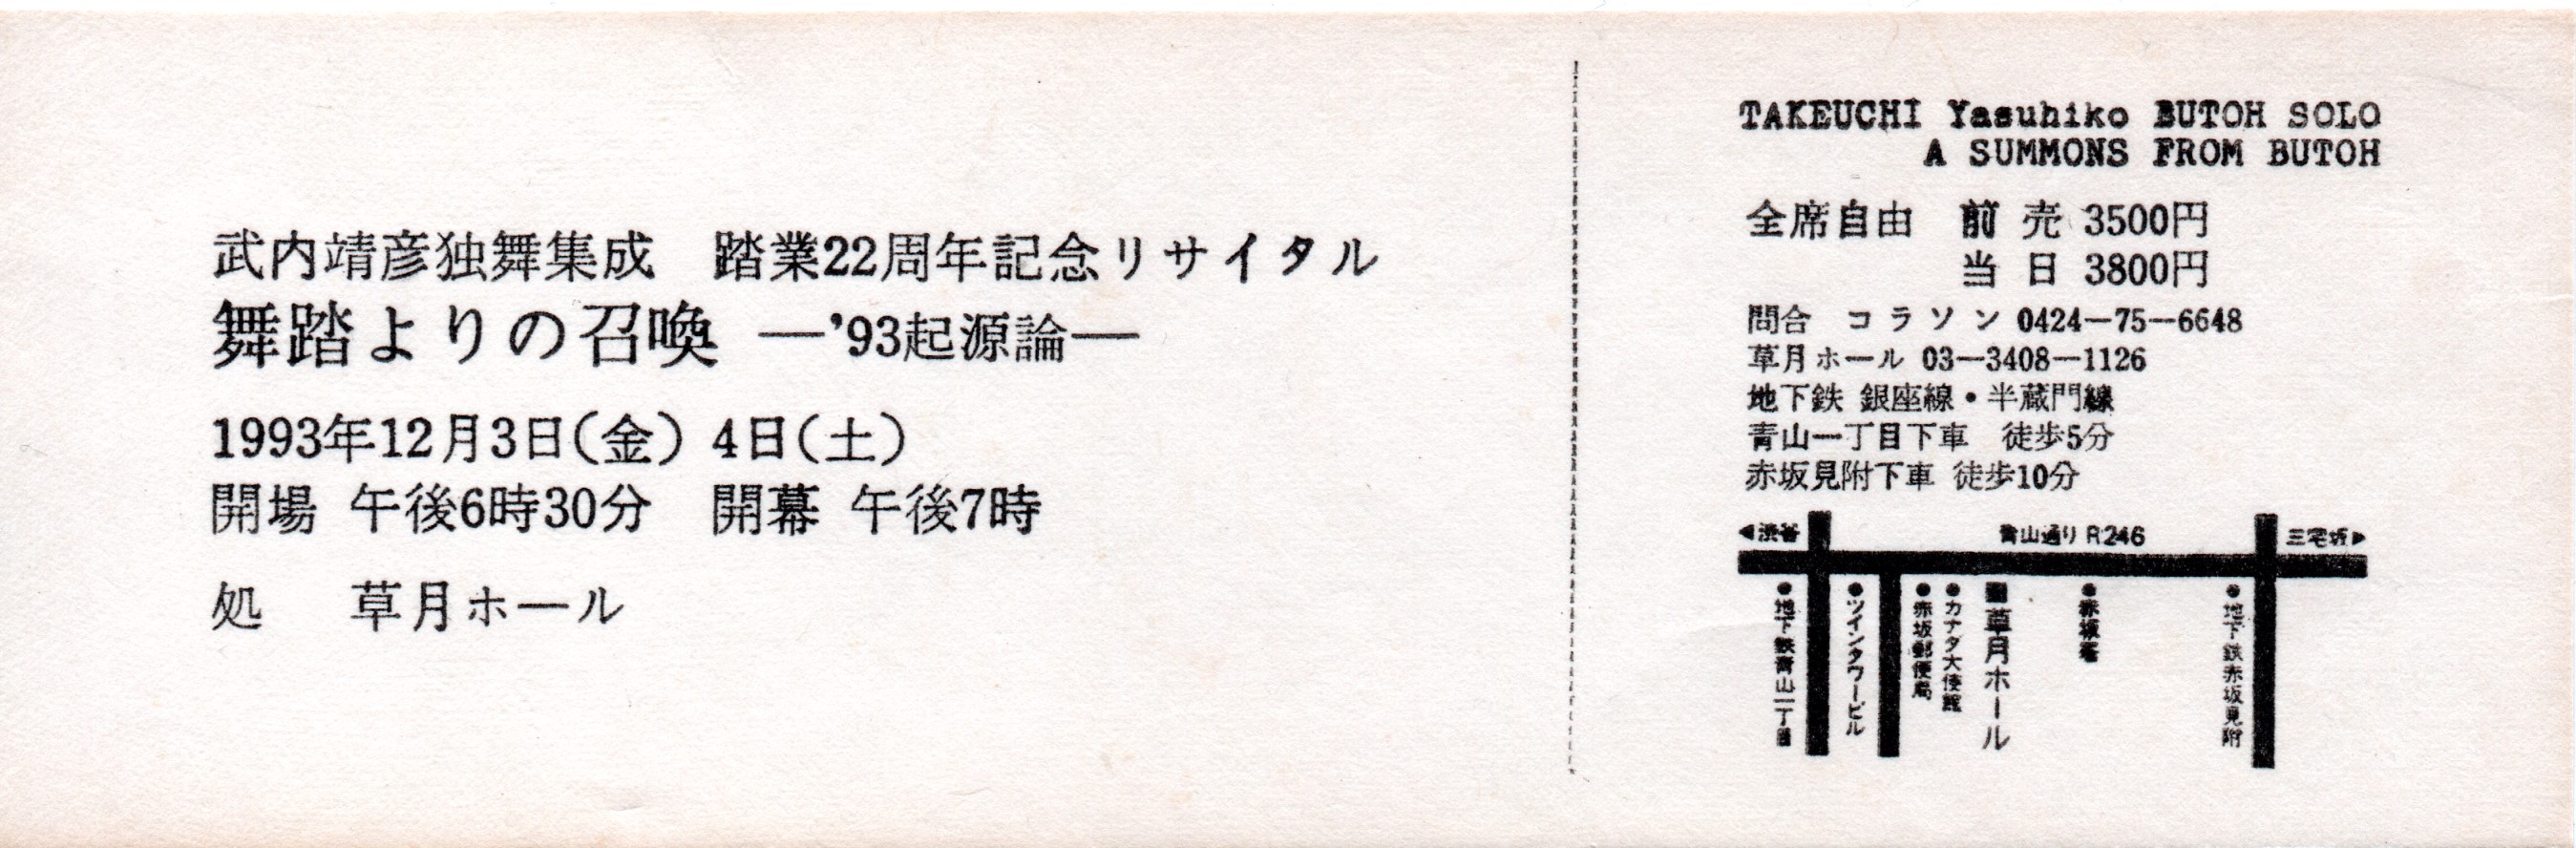 武内靖彦独舞集成　踏業22周年記念リサイタル
舞踏よりの召喚 —’93起源論—
1993年12月3日(金) 4日(土)
開場 午後6時30分　開幕 午後7時
処　草月ホール
TAKEUCHI Yasuhiko BUTOH SOLO
A SUMMONS FROM BUTOH
全席自由　前 売 3500円
当 日 3800円
問合　コラソン 0424—75—6648
草月ホール 03—3408—1126
地下鉄 銀座線・半蔵門線
青山一丁目下車　徒歩5分
赤坂見附下車 徒歩10分
◀渋谷
青山通り R246
三宅坂▶
●地下鉄青山一丁目
●ツインタワービル
●赤坂郵便局
●カナダ大使館
■草月ホール
●赤坂署
●地下鉄赤坂見附